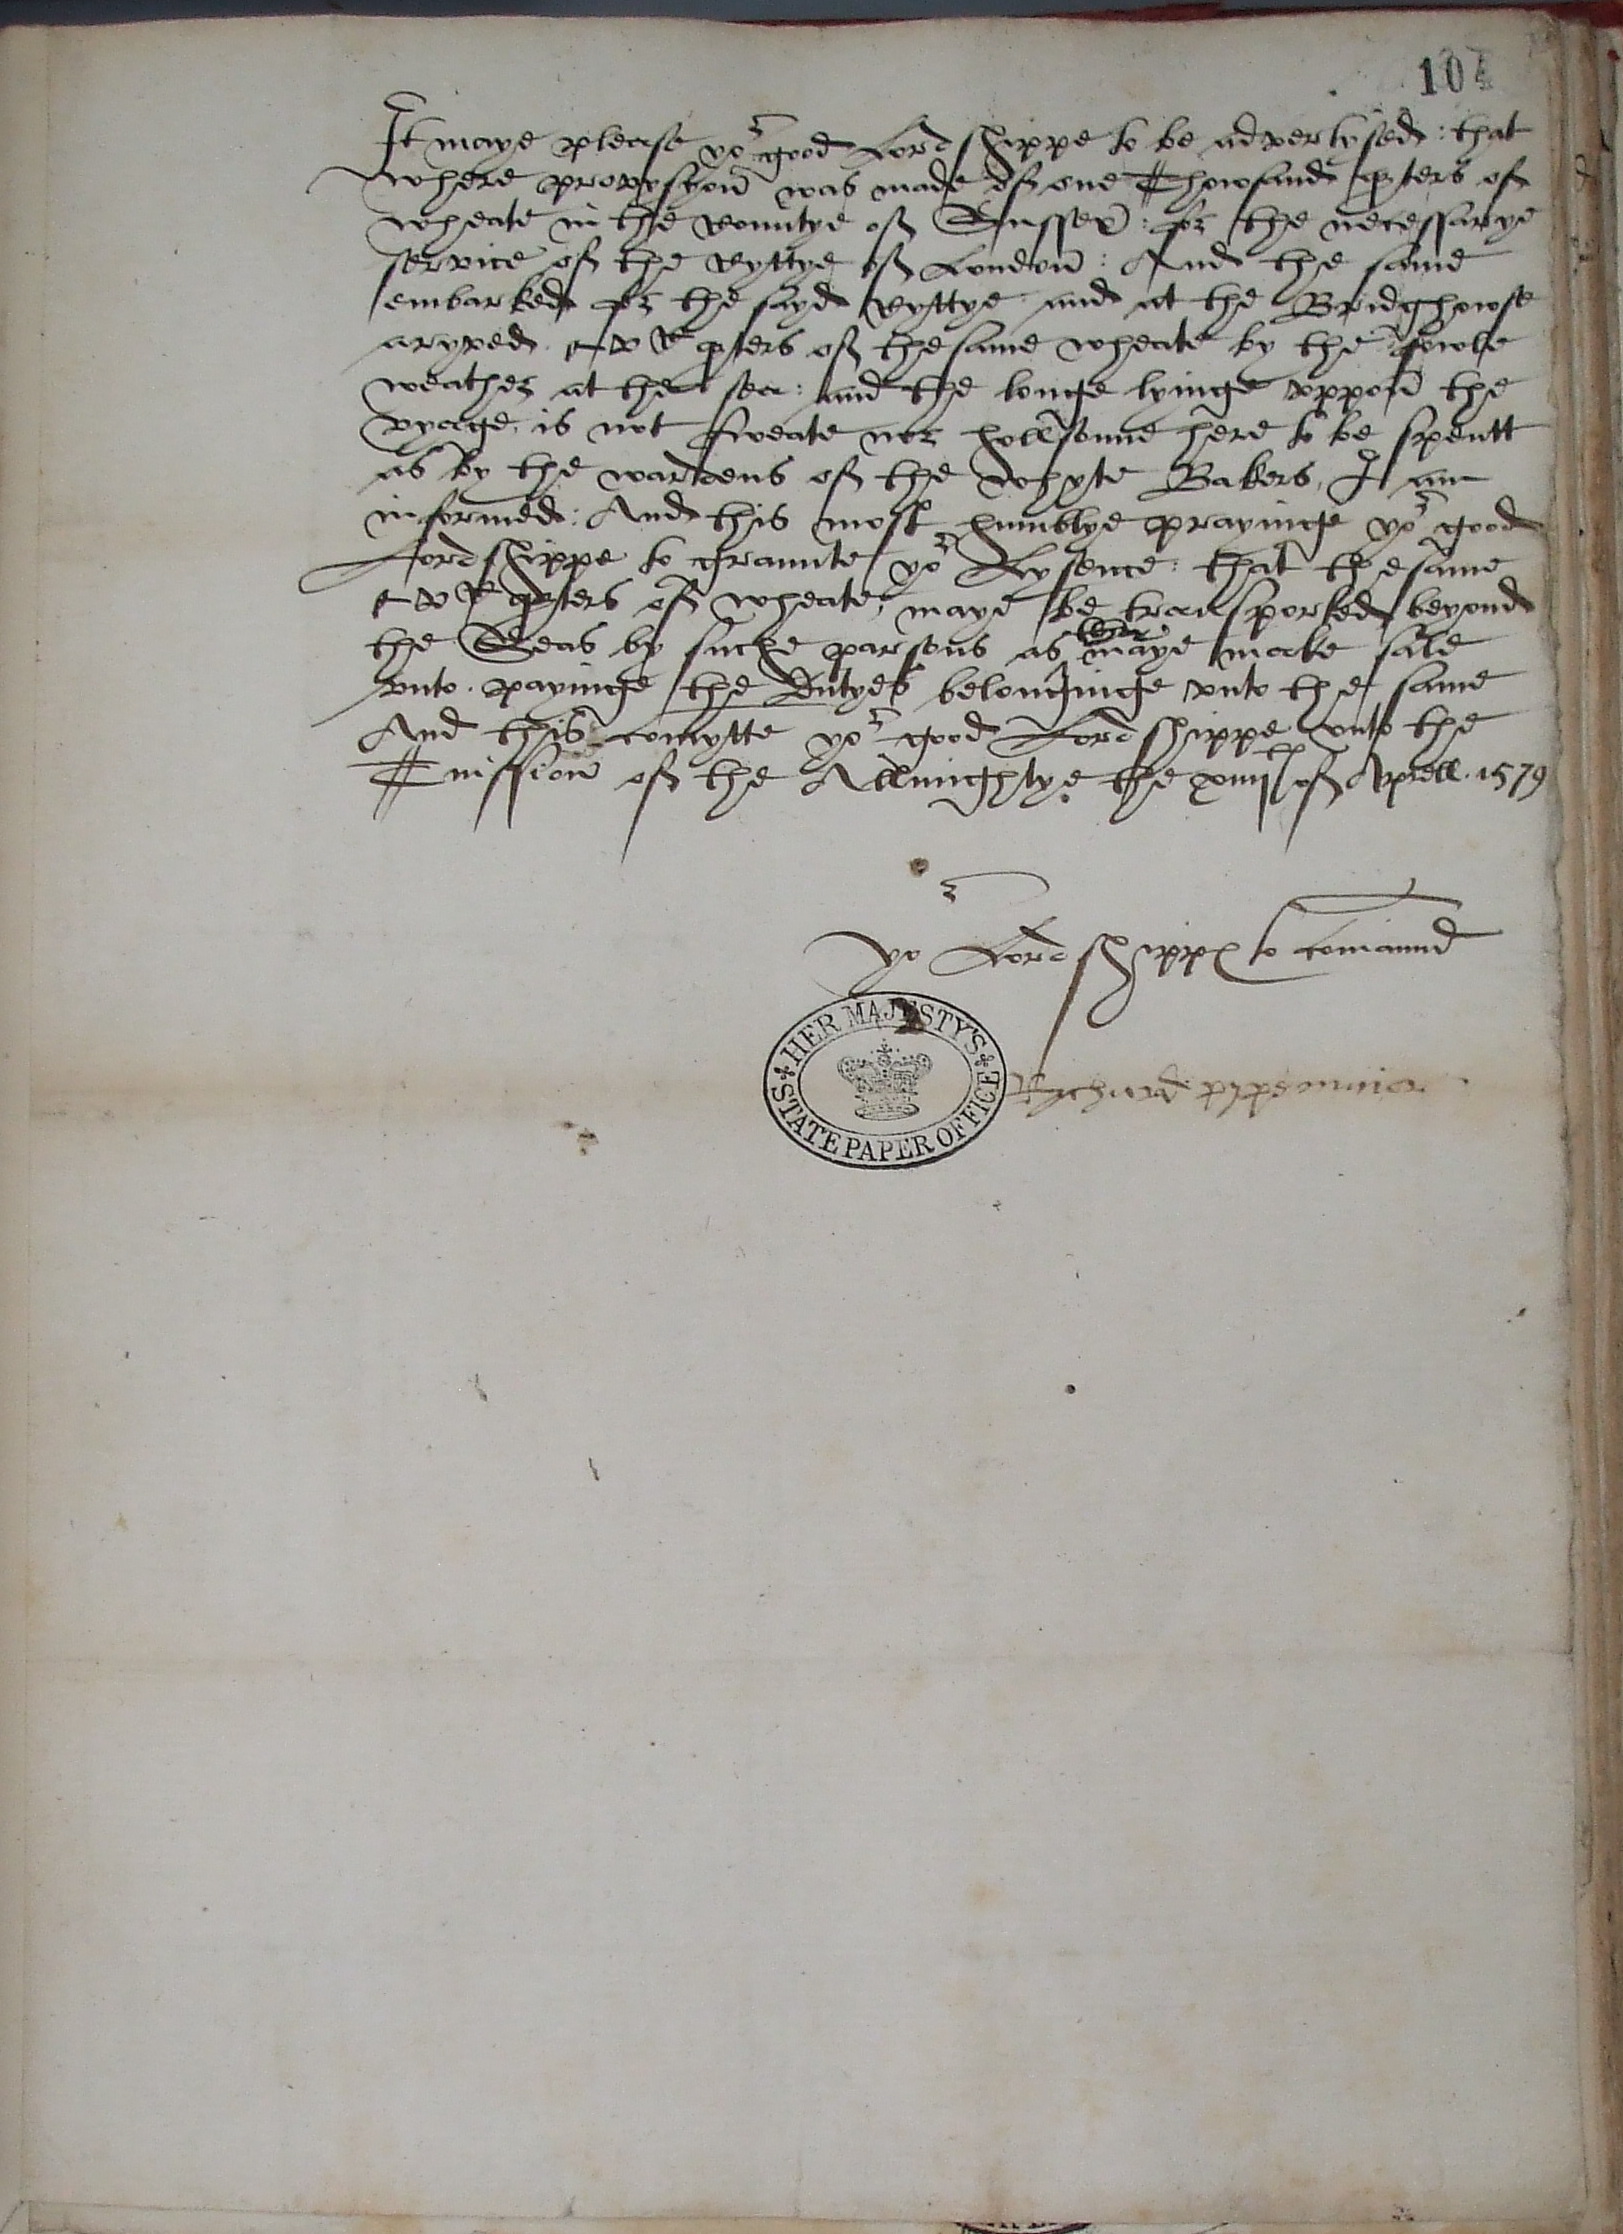 104
It maye please yor good Lordshippe to be advertysed : that
where provysyon was made of one Thowsand qters of
wheate in the Countye of Sussex : for the necessarye
service of the Cyttye of London : And the same
embarked for the sayd Cyttye and at the Bridghowse
aryved. qters of the same wheate by the fowle
weather at the sea : and the longe lyinge uppon the
vyage, is not sweate nor hollsome here to be spentt
as by the wardens of the whyte Bakers, I am
informed : And this most humblye prayinge yor good
Lordshippe to graunte yor Lysence : that the same
qters of wheate, maye be transported beyond
the Seas by suche parsons as maye make sale
unto. payinge the Dutyes belonginge unto the same
And this comytte yor good Lordshippe unto the
Tuission of the Allmightye the xiiijth of Aprell. 1579
yor Lordshipps to comaund
Rychard pype maior
HER MAJESTY'S STATE PAPER OFFICE